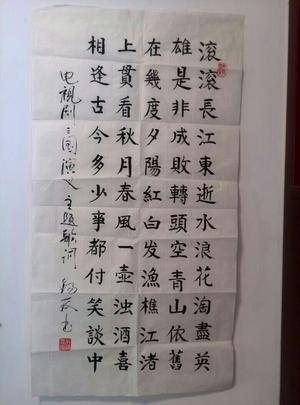 滚滚長江東逝水浪花淘盡英
雄是非成敗轉頭空青山依舊
在幾度夕陽紅白发漁樵江渚
上貫看秋月春風一壶浊酒喜
相逢古今多少事都付笑談中
电視剧三国演义主题歌词